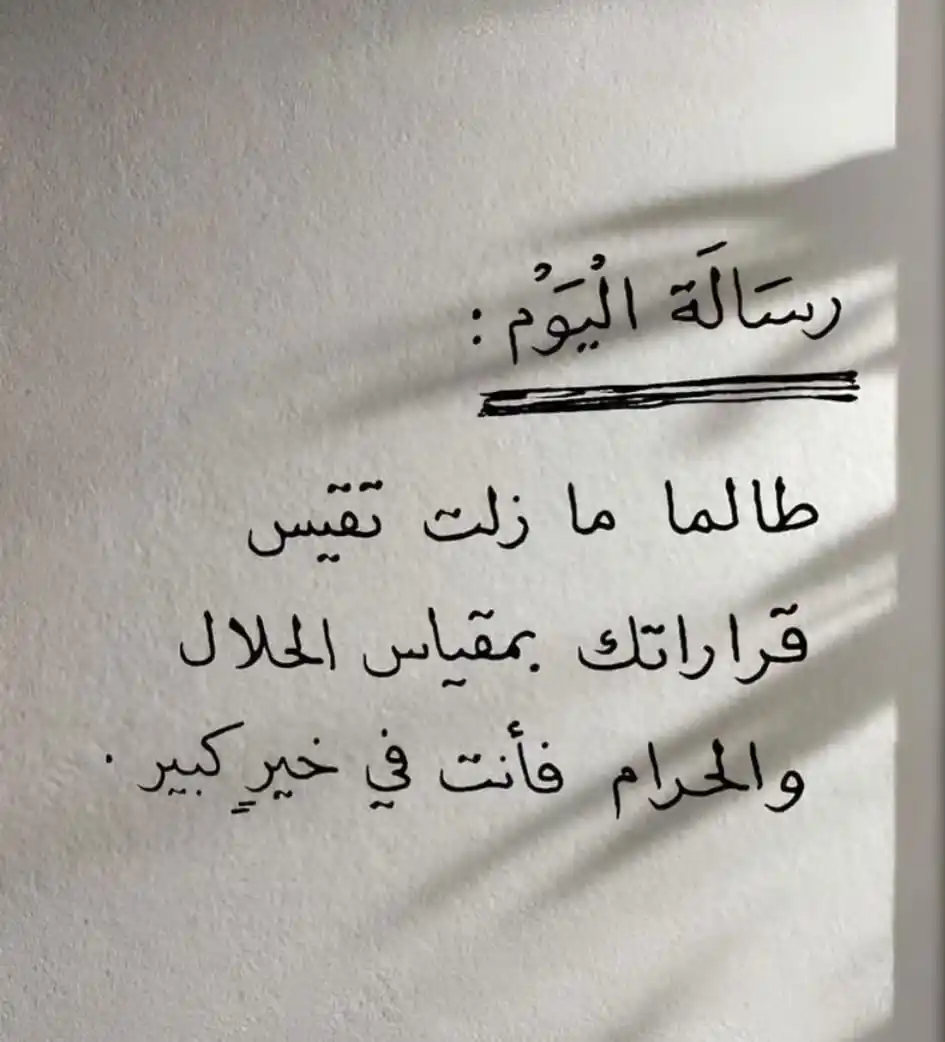 رسَالَة الْيَوْم :
طالما ما زلت تقيس
قراراتك بمقياس الحلال
والحرام فأنت في خيرٍ كبير .